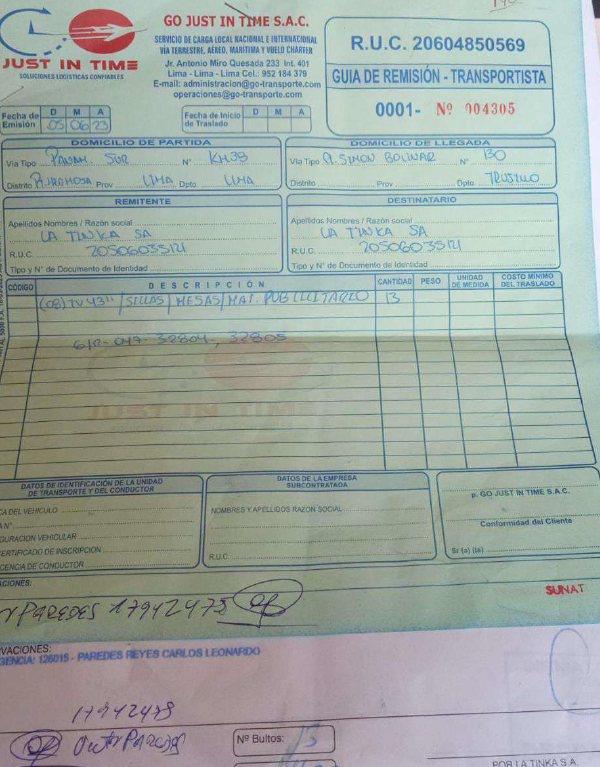 GO JUST IN TIME S.A.C.
JUST IN TIME
SOLUCIONES LOGISTICAS CONFIABLES
SERVICIO DE CARGA LOCAL NACIONAL E INTERNACIONAL
VIA TERRESTRE, AÉREO, MARÍTIMA Y VUELO CHÁRTER
Jr. Antonio Miro Quesada 233 Int. 401
Lima - Lima - Lima Cel.: 952 184 379
E-mail: administracion@go-transporte.com
operaciones@go-transporte.com
R.U.C. 20604850569
GUIA DE REMISIÓN - TRANSPORTISTA
0001- Nº 004305
Fecha de Emisión D M A 05 06 23
Fecha de Inicio de Traslado D M A
DOMICILIO DE PARTIDA
Vía Tipo PANAM. SUR Nº KM38
Distrito P. HERMOSA Prov LIMA Dpto LIMA
DOMICILIO DE LLEGADA
Vía Tipo A. SIMON BOLIVAR Nº 130
Distrito Prov Dpto TRUJILLO
REMITENTE
Apellidos Nombres / Razón social
LA TINKA SA
R.U.C. 20506035121
Tipo y N° de Documento de Identidad
DESTINATARIO
Apellidos Nombres / Razón social
LA TINKA SA
R.U.C. 20506035121
Tipo y N° de Documento de Identidad
CÓDIGO DESCRIPCIÓN CANTIDAD PESO UNIDAD DE MEDIDA COSTO MÍNIMO DEL TRASLADO
(08) TV 43" / SILLAS / MESAS / MAT. PUBLICITARIO 13
G/R-047-32804, 32805
DATOS DE IDENTIFICACIÓN DE LA UNIDAD
DE TRANSPORTE Y DEL CONDUCTOR
CA DEL VEHICULO
A N°
GURACIÓN VEHICULAR
CERTIFICADO DE INSCRIPCION
CENCIA DE CONDUCTOR
DATOS DE LA EMPRESA
SUBCONTRATADA
NOMBRES Y APELLIDOS RAZON SOCIAL
R.U.C
p. GO JUST IN TIME S.A.C.
Conformidad del Cliente
Sr (a) (ita)
ACIONES:
SUNAT
PAREDES 17942475
VACIONES:
GENCIA: 126015 - PAREDES REYES CARLOS LEONARDO
17942475
Nº Bultos: 13
POR LA TINKA S.A.